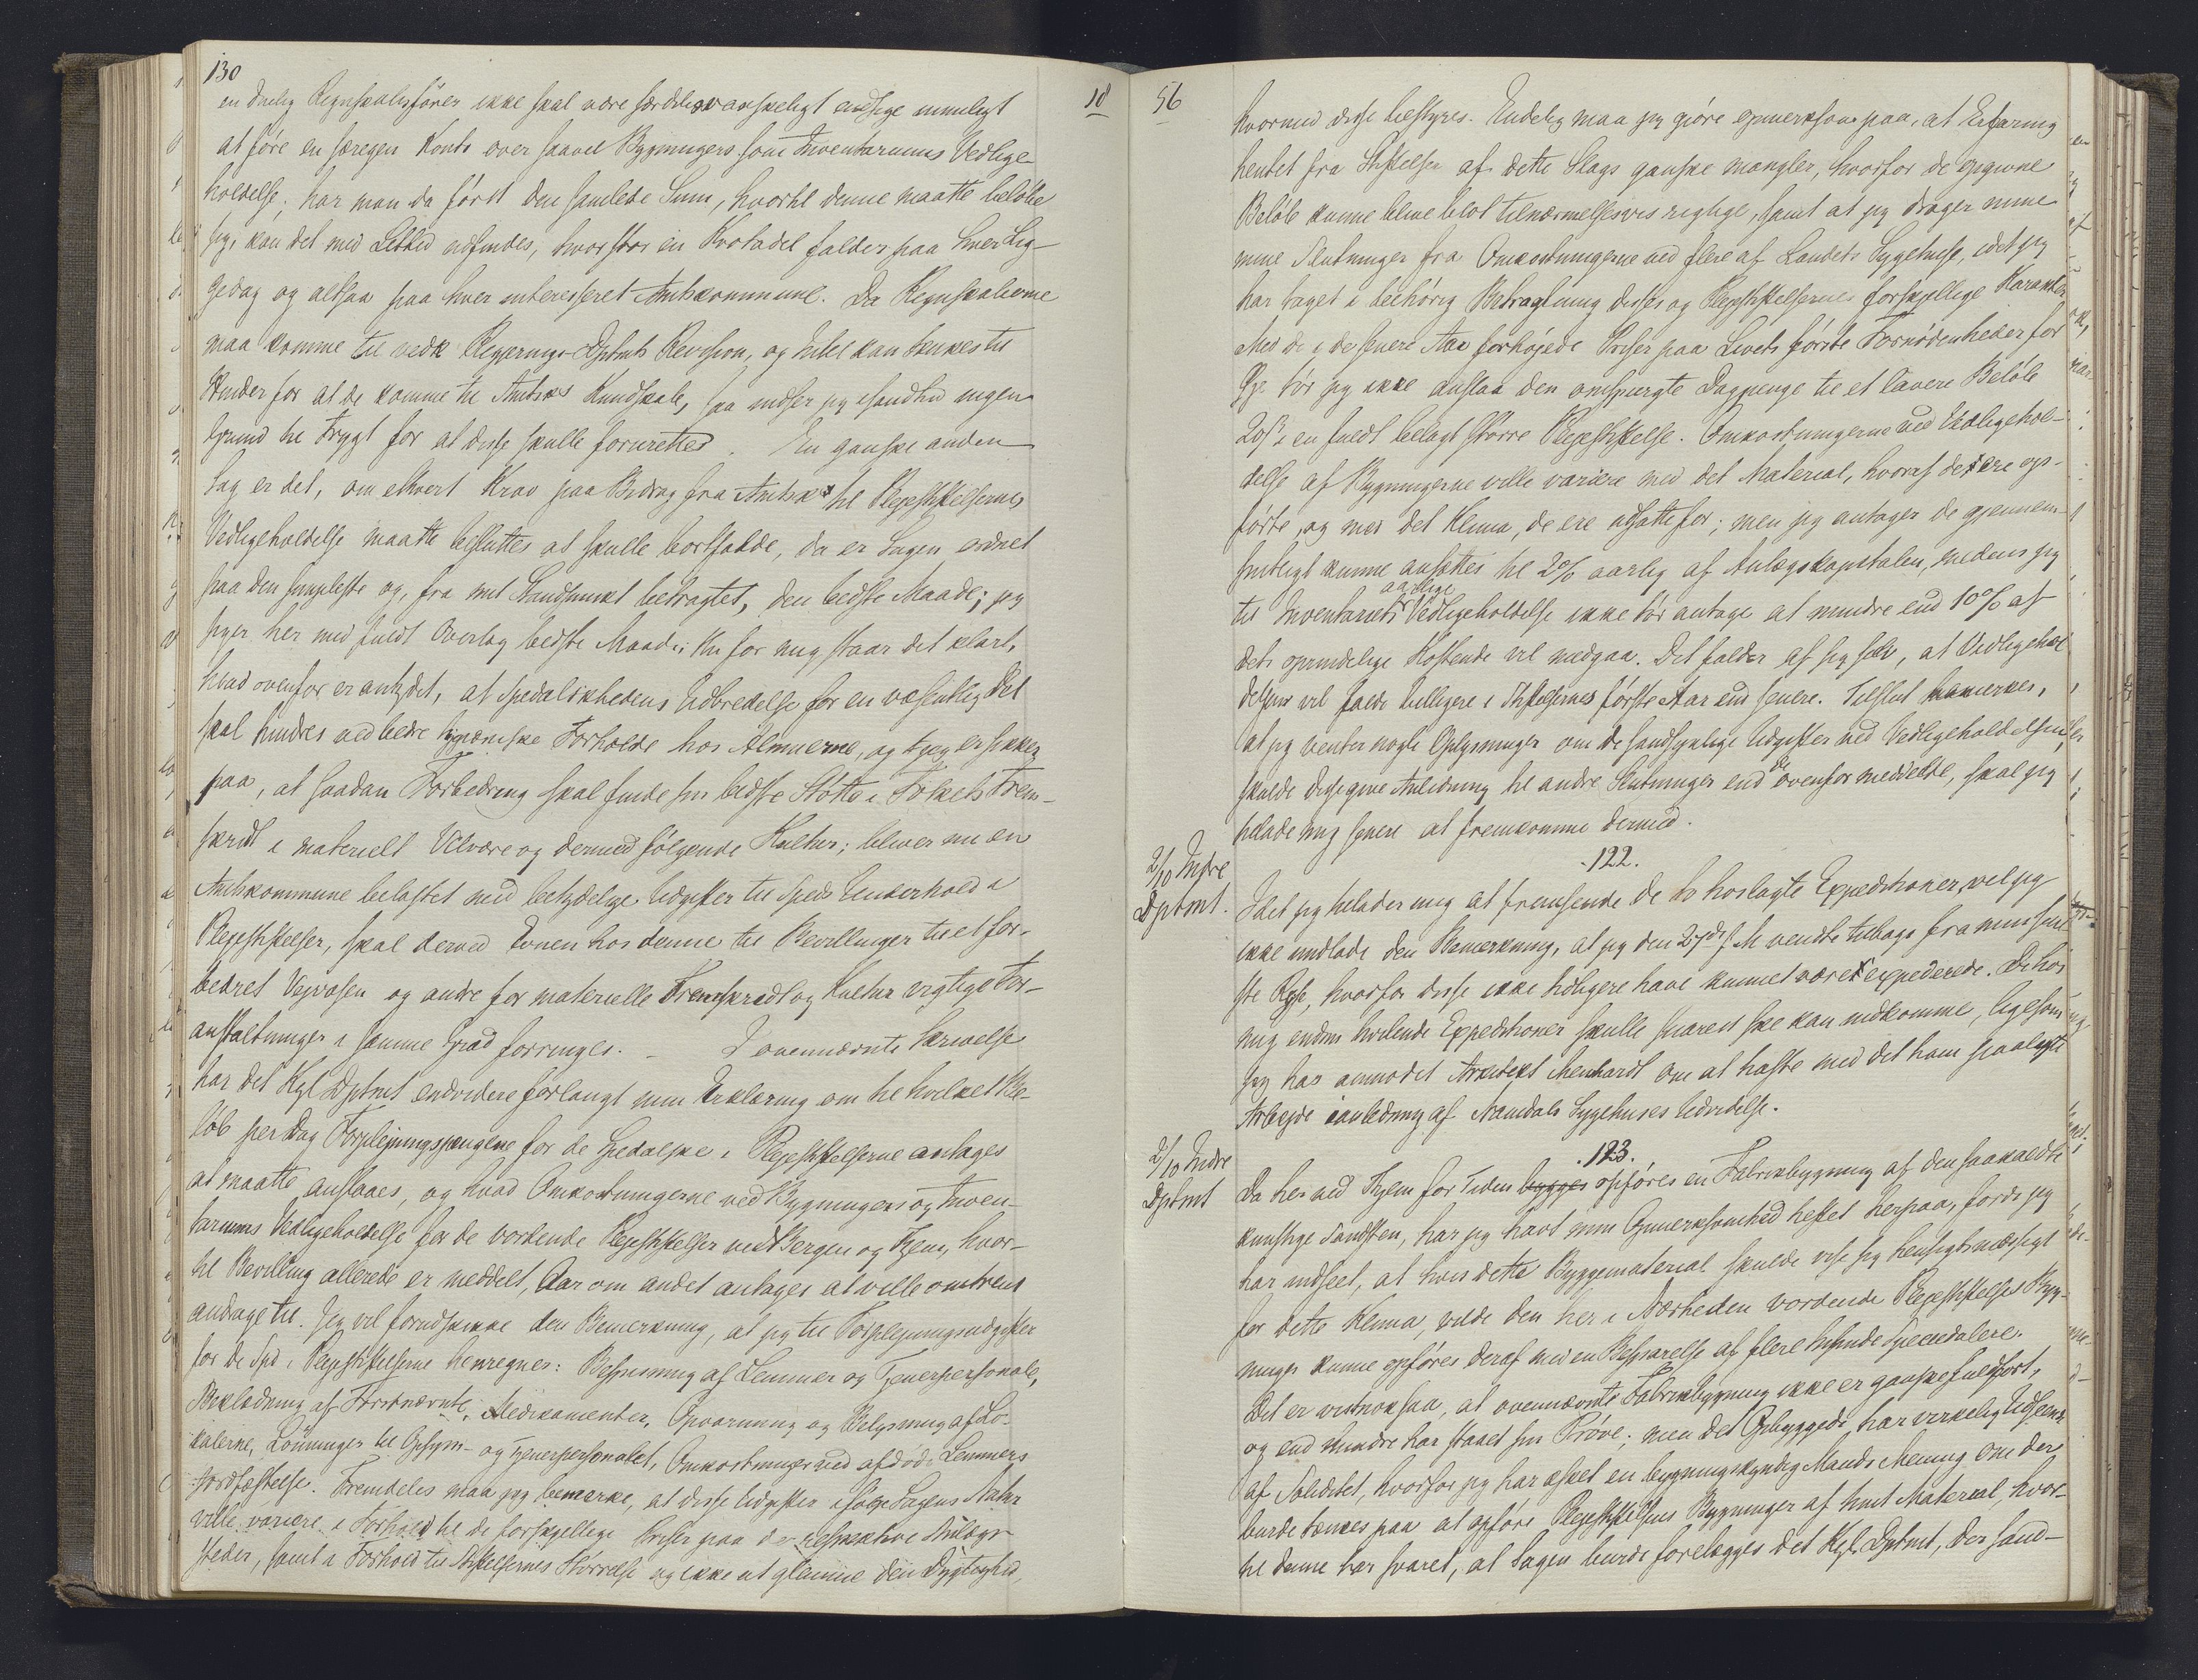 130
en duelig Regnskabsfører ikke skal være særdeles vanskeligt endsige umuligt
at føre en særegen Konto over saavel Bygningers som Inventariums Vedlige-
holdelse; har man da først den samlede Sum, hvortil denne maatte beløbe
sig, kan det med Lethed udfindes, hvor stor en Kvotadel falder paa hver Lig-
gedag og altsaa paa hver interesseret Amtskommune. Da Regnskaberne
maa komme til vedk Regjerings-Dptmts Revision, og Intet kan tænkes til
Hinder for at de komme til Amts Kundskab, saa indser jeg isandhed ingen
Grund til Frygt for at disse skulle forurettes. En ganske anden
Sag er det, om ethvert Krav paa Bidrag fra Amts til Plejestiftelsernes
Vedligeholdelse maatte besluttes at skulle bortfalde, da er Sagen ordnet
paa den simpleste og, fra mit Standpunkt betragtet, den bedste Maade; jeg
siger her med fuldt Overlæg bedste Maade; thi for mig staar det klart,
hvad ovenfor er antydet, at Spedalskhedens Udbredelse for en væsentlig Del
skal hindres ved bedre hygieniske Forholde hos Almuerne, og jeg er sikker
paa, at saadan Forbedring skal finde sin bedste Støtte i Folkets Frem-
skridt i materielt Velvære og dermed følgende Kultur; bliver nu en
Amtskommune belastet med betydelige Udgifter til Speds Underhold i
Plejestiftelser, skal derved Evnen hos denne til Bevillinger til et for-
bedret Vejvæsen og andre for materielle Fremskridt og Kultur vigtige For-
anstaltninger i samme Grad forringes. – I ovennævnte Skrivelse
har det Kgl Dptmt endvidere forlangt min Erklæring om til hvilket Be-
løb per Dag Forplejningspengene for de Spedalske i Plejestiftelserne antages
at maatte anslaaes, og hvad Omkostningerne ved Bygningers og Inven-
tariums Vedligeholdelse for de vordende Plejestiftelser ved Bergen og Hjem, hvor-
til Bevilling allerede er meddelt, Aar om andet antages at ville omtrent
andrage til. Jeg vil forudskikke den Bemærkning, at jeg til Forplejningsudgifter
for de Spd i Plejestiftelserne henregner: Bespisning af Lemmer og Tjenerpersonale,
Beklædning af Førstnævnte, Medikamenter, Opvarming og Belysning af Lo-
kalerne, Lønninger til Opsyns- og Tjenerpersonalet, Omkostninger ved afdøde Lemmers
Jordfæstelse. Fremdeles maa jeg bemærke, at disse Udgifter ifølge Sagens Natur
ville variere i Forhold til de forskjellige Priser paa de respektive Anlægs-
steder, samt i Forhold til Stiftelsernes Størrelse og ikke at glemme den Dygtighed,
18
56
hvormed disse bestyres. Endelig maa jeg gjøre opmærksom paa, at Erfaring
hentet fra Stiftelser af dette Slags ganske mangler, hvorfor de opgivne
Beløb kunne blive blot tilnærmelsesvis rigtige, samt at jeg drager mine
mine Slutninger fra Omkostningerne ved flere af Landets Sygehuse, idet jeg
har taget i behørig Betragtning disses og Plejestiftelsernes forskjellige Karakter
Med de i de senere Aar forhøjede Priser paa Livets første Fornødenheder for
Øje tør jeg ikke anslaa den omspurgte Dagpenge til et lavere Beløb
20 s i en fuldt belagt større Plejestiftelse. Omkostningerne ved Vedligehol-
delse af Bygningerne ville variere med det Material, hvoraf de ere op-
førte, og med det Klima, de ere udsatte for; men jeg antager de gjennem-
snitligt kunne ansættes til 2% aarlig af Anlægskapitalen, medens jeg
aarlige
til Inventariets Vedligeholdelse ikke tør antage at mindre end 10% af
dets oprindelige Kostende vil medgaa. Det falder af sig selv, at Vedligehol-
delsen vil falde billigere i Stiftelsernes første Aar end senere. Tilslut bemærkes,
at jeg venter nogle Oplysninger om de sandsynlige Udgifter ved Vedligeholdelsen;
de
skulde disse give Anledning til andre Slutninger end ovenfor meddelte, skal jeg
tillade mig senere at fremkomme dermed.
.122.
2/10 Indre
Dptmt.
Idet jeg tillader mig at fremsende de to hoslagte Expeditioner, vil jeg
ikke undlade den Bemærkning, at jeg den 27de f. M vendte tilbage fra min sene-
ste Rejse, hvorfor disse ikke tidligere have kunnet være expederede. De hos
mig endnu hvilende Expeditioner skulle snarest ske kan indkomme, ligesom
jeg har anmodet Arkitekt Menhardt om at haste med det ham paalagte
Arbejde ianledning af Namdals Sygehuses Udvidelse.
.123.
2/10 Indre
Dptmt
Da her ved Hjem for Tiden bygges opføres en Fabrikbygning af den saakaldte
kunstige Sandsten, har jeg havt min Opmærksomhed heftet herpaa, fordi jeg
har indseet, at hvis dette Byggematerial skulde vise sig hensigtsmæssigt
for dette Klima, vilde den her i Nærheden vordende Plejestiftelses Byg-
ninger kunne opføres deraf med en Besparelse af flere tusinde Speciedalere.
Det er vistnok saa, at ovennævnte Fabrikbygning ikke er ganske fuldført,
og end mindre har staaet sin Prøve; men det Opbyggede har virkelig Udseende
af Soliditet, hvorfor jeg har æsket en bygningskyndig Mands Mening om der
burde tænkes paa at opføre Plejestiftelsens Bygninger af hint Material, hvor-
til denne har svaret, at Sagen burde forelægges det Kgl. Dptmt, der sand-